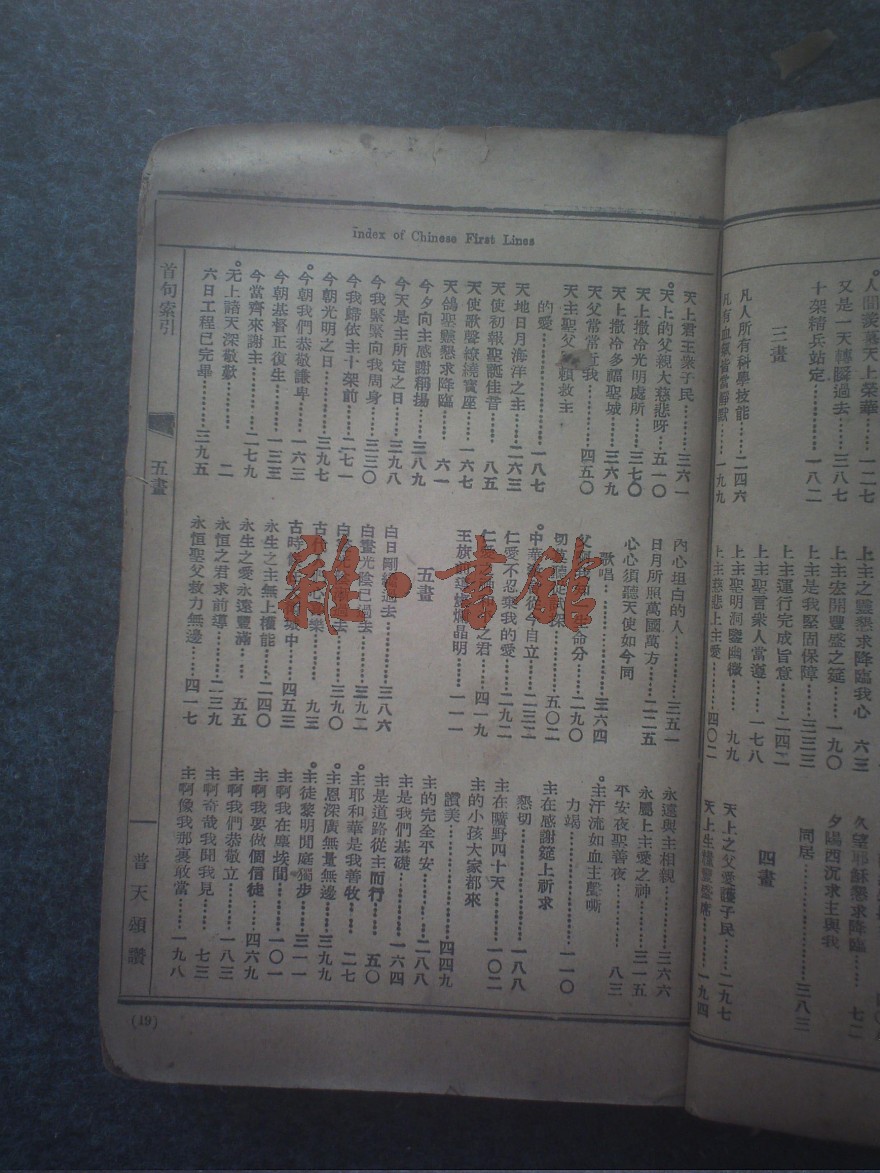 Index of Chinese First Lines
天上君王衆子民……三六一
天上的父親大慈悲呀…五一〇
天上撤冷光明處所……三七〇
天上撤冷多福聖城……三六九
天父常常近我……四五〇
天主聖父
賴救主
的愛……一八七
天地日月海洋之主……二六三
天使初報聖誕佳音……八五
天使歌聲繚繞寶座……一六七
天鴿聖靈懇求降臨……六一
今夕向主感謝稱揚……三八九
今天是主所定之日……三九八
今我緊緊向我周身……三三〇
今我歸依主十架前……二七一
今朝光明之日……三九七
今朝我們恭敬謙卑……一六三
今朝基督正復生……一三三
今當齊來謝主……二七九
无上諸天深敬歎……二
六日工程已完畢……三九五
內心坦白的人……三五一
日月所照萬國萬方……二二五
心心須聽天使如今同
歌唱……三六四
命分……二九〇
五〇二
中華
從今自立……二三二
仁愛不忍棄我的愛……二九二
之君……四一九
王旗
晶明……一一一
五畫
白日剛
過去……三八六
白晝光陰已過去……三九二
白
去……三九〇
古
樂……九三
古時
城中……四五三
永生之主無上權能……二四〇
永生之愛永遠豐滿……五五
永恒之君求前導……二三九
永恒聖父救力無邊……四一七
永遠與主相親……三六六
永屬上主愛之神……三一五
平安夜聖善夜……八三
主汗流如血主聲嘶
力竭……一一〇
主在感謝筵上祈求
懇切……一八八
主在曠野四十天……一〇二
主的小孩大家都來
讚美……四四九
主的完全平安……二八八
主是我們基礎……一六四
主是道路從主而行……五〇
主耶和華是我善牧……二七
主恩深廣無量無邊……三九九
主徒黎明閒庭獨步……三一一
主啊我在塵埃間……一〇一
主啊我要做個信徒……四六九
主啊我們恭敬立……一八三
主啊奇哉我聞我見……七三
主啊像我那裏敢當……一九八
首句索引
五畫
普天頌讚
(19)
人間
天上榮華……一二七
又是一天轉瞬過去……三八七
十架精兵站定……一八二
三畫
凡人所有科學技能……二四六
凡有血氣皆當靜默……一九九
上主之靈懇求降臨我心
六三
上主宏開豐盛之筵……一九〇
上主是我堅固保障……三三三
上主運行完成旨意……二四二
上主聖言衆人當遵……一七八
上主聖明洞鑒幽微……九九
上主慈悲上主愛……四〇二
久望耶穌懇求降臨……七二
夕陽西沉求主與我
同居……三八三
四畫
天上之父愛護子民……二九七
天上生糧豐盛席……一九四
雜·書館